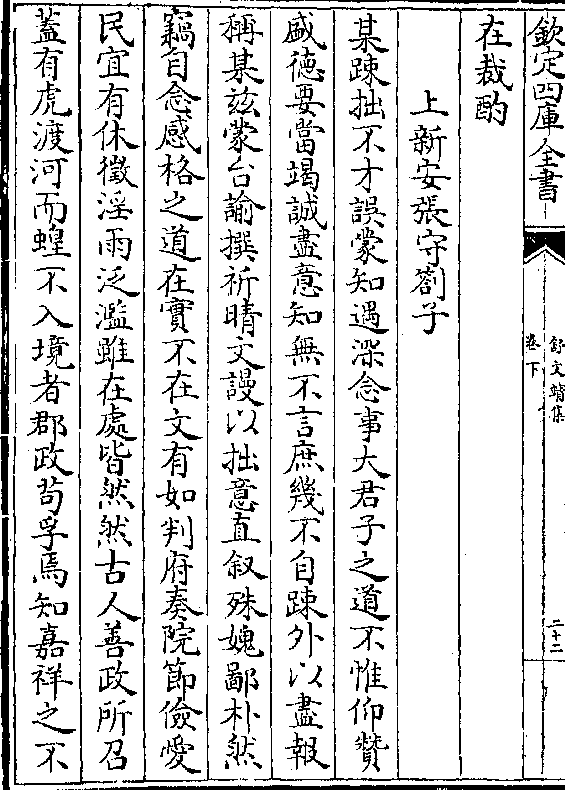 欽定四庫全書
舒文靖集
卷下
二十二
在裁酌
上新安張守劄子
某踈拙不才誤蒙知遇深念事大君子之道不惟仰贊
盛徳要當竭誠盡意知無不言庶幾不自踈外以盡報
稱某兹蒙台諭撰祈晴文謾以拙意直叙殊媿鄙朴然
竊自念感格之道在實不在文有如判府奏院節儉愛
民宜有休徴淫雨泛濫雖在處皆然然古人善政所召
蓋有虎渡河而蝗不入境者郡政苟孚焉知嘉祥之不